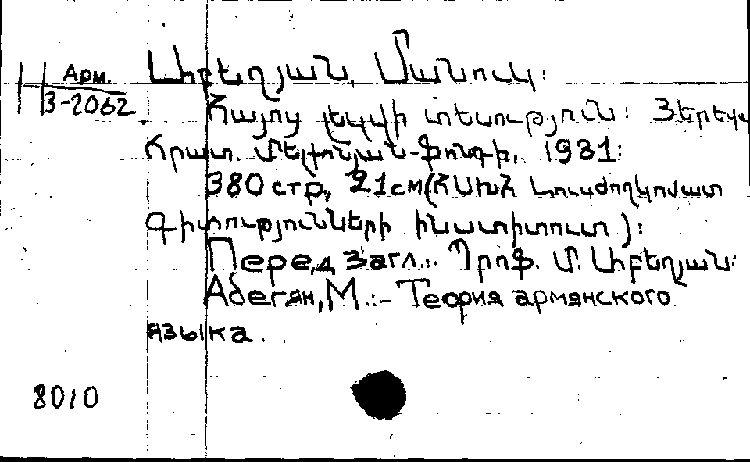 Арм.
З-2062
Աբեղյան, Մանուկ:
Հայոց լեզվի տեսություն: Յերեվ
Հրատ. Մելքոնյան-ֆոնդի, 1931:
380 стр., 21 см (ՀՍԽՀ Լուսժողկոմատ
Գիտությունների ինստիտուտ):
Перед загл.: Պրոֆ. Մ. Աբեղյան:
Абегян, М.:- Теория армянского
языка.
8010